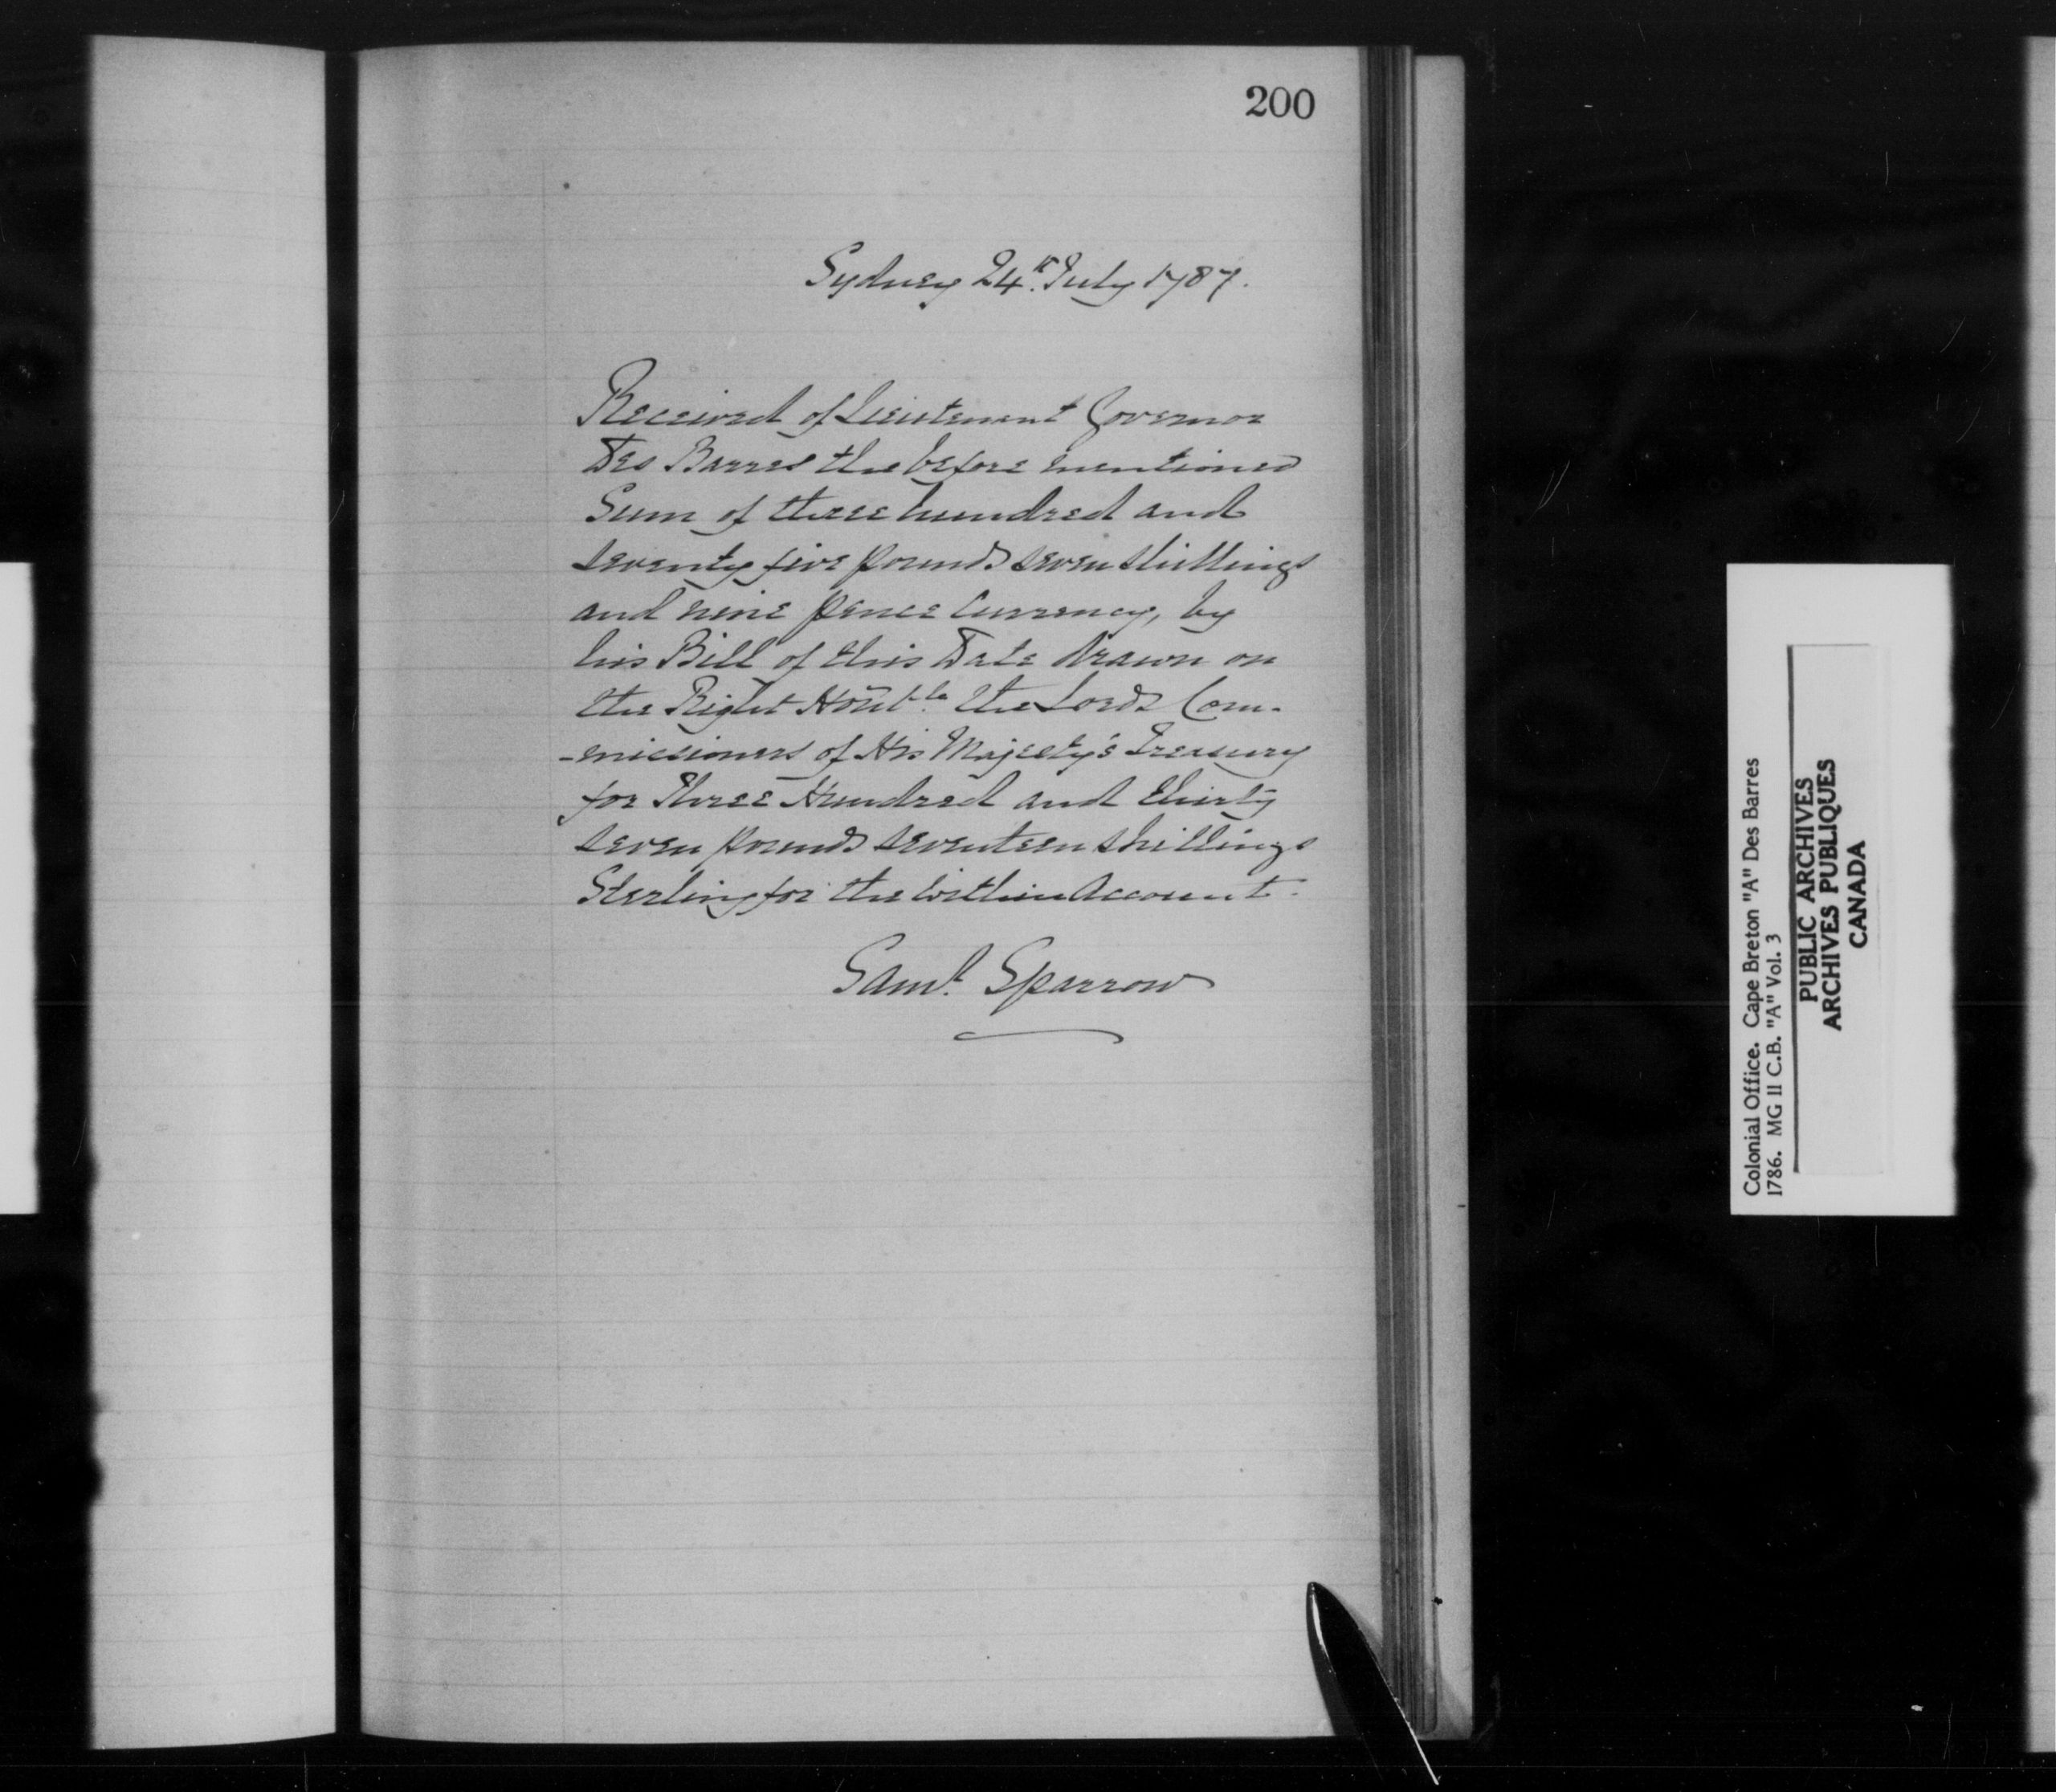 200
Sydney 24th. July 1787.
Received of Lieutenant Governor
Des Barres the before mentioned
Sum of three hundred and
seventy five pounds seven shillings
and nine pence Currency, by
his Bill of this Date drawn on
the Right Honble. the Lords Com-
-missioners of His Majesty's Treasury
for Three Hundred and thirty
seven pounds seventeen shillings
Sterling for the within Account.
Saml. Sparrow
Colonial Office. Cape Breton "A" Des Barres
1786. MG 11 C.B. "A" Vol. 3
PUBLIC ARCHIVES
ARCHIVES PUBLIQUES
CANADA